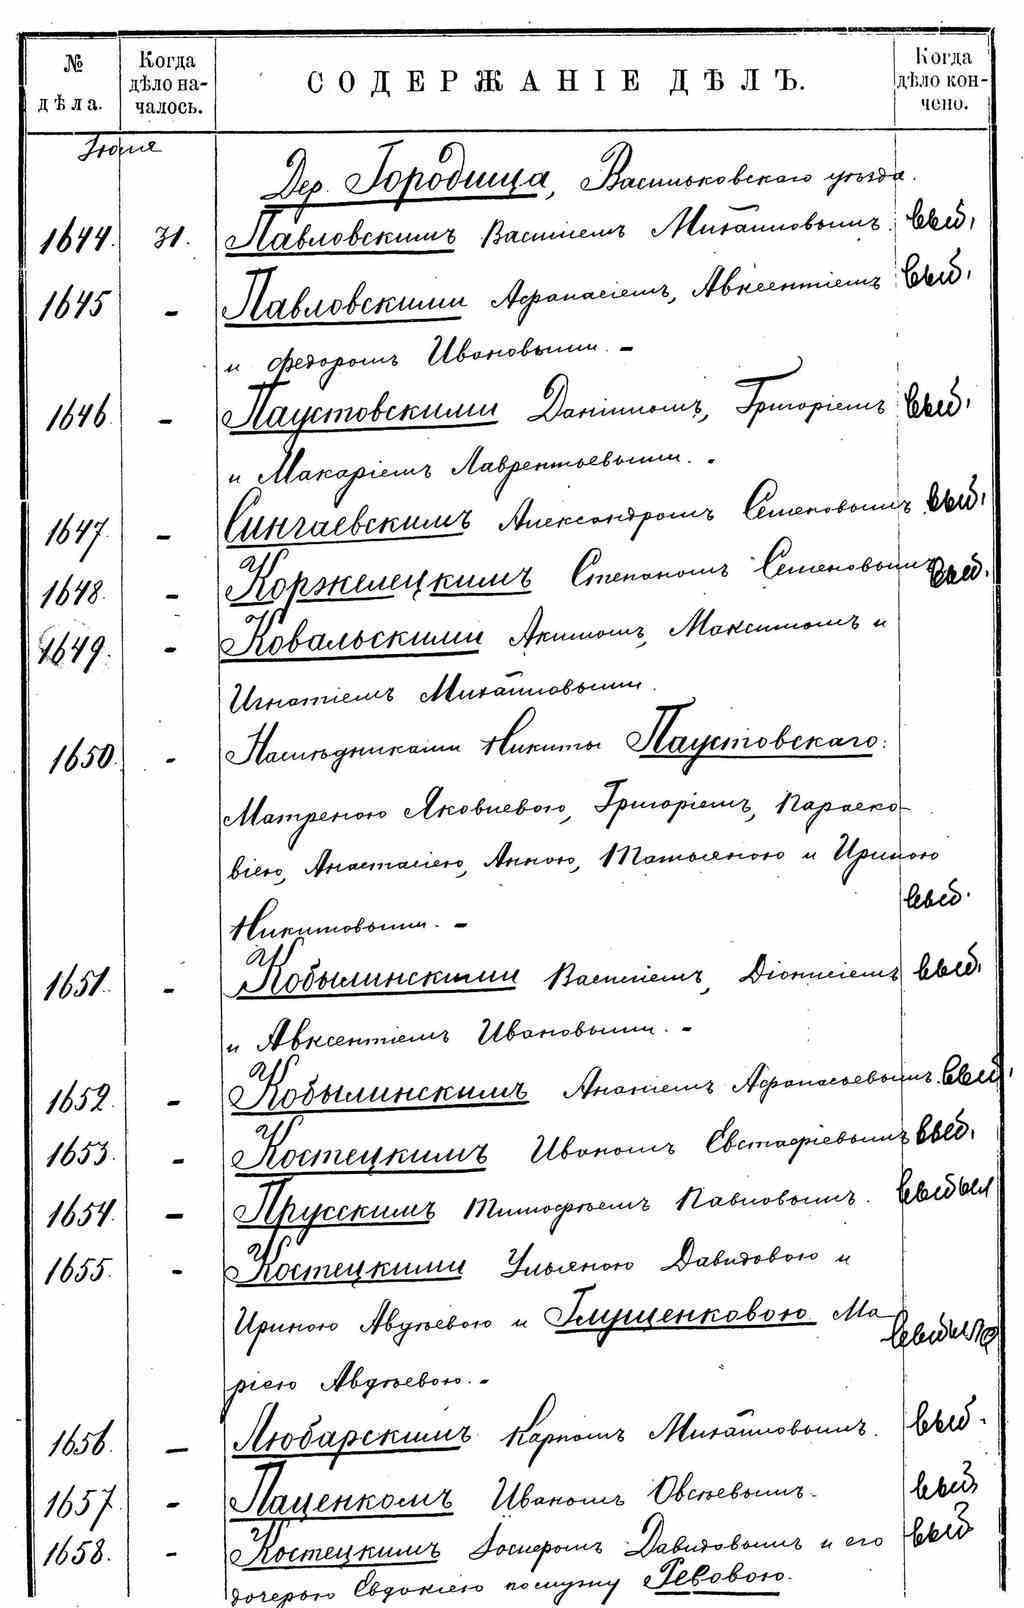 № дѣла.
Когда дѣло на-чалось.
СОДЕРЖАНІЕ ДѢЛЪ.
Когда дѣло кон-чено.
Іюля
Дер. Городища, Васильковскаго уѣзда.
1644. 31. Павловскимъ Василіемъ Михайловымъ. выб.
1645 – Павловскими Афанасіемъ, Авксентіемъ выб.
и Федоромъ Ивановыми. –
1646 – Паустовскими Даніиломъ, Григоріемъ выб.
и Макаріемъ Лаврентьевыми. –
1647. – Сингаевскимъ Александромъ Семеновымъ выб.
1648. – Коржелецкимъ Степаномъ Семеновымъ выб.
1649. – Ковальскими Акимомъ, Максимомъ и
Игнатіемъ Михайловыми.
1650. – Наслѣдниками Никиты Паустовскаго:
Матреною Яковлевою, Григоріемъ, Параско-
віею, Анастасіею, Анною, Татьяною и Ириною
Никитовыми. – выб.
1651. – Кобылинскими Василіемъ, Діонисіемъ выб.
и Авксентіемъ Ивановыми. –
1652. – Кобылинскимъ Ананіемъ Афанасьевымъ. выб.
1653. – Костецкимъ Иваномъ Евстафіевымъ выб.
1654. – Прусскимъ Тимофѣемъ Павловымъ. выбыл
1655. – Костецкими Ульяною Давидовою и
Ириною Авдѣевою и Глущенковою Ма-
выбыло
ріею Авдѣевою. –
1656. – Любарскимъ Карпомъ Михайловымъ. выб.
1657. – Паценкомъ Иваномъ Овсѣевымъ. выб.
1658. – Костецкимъ Давидовымъ и его выб
дочерью Евдокіею по мужу Ревовою.